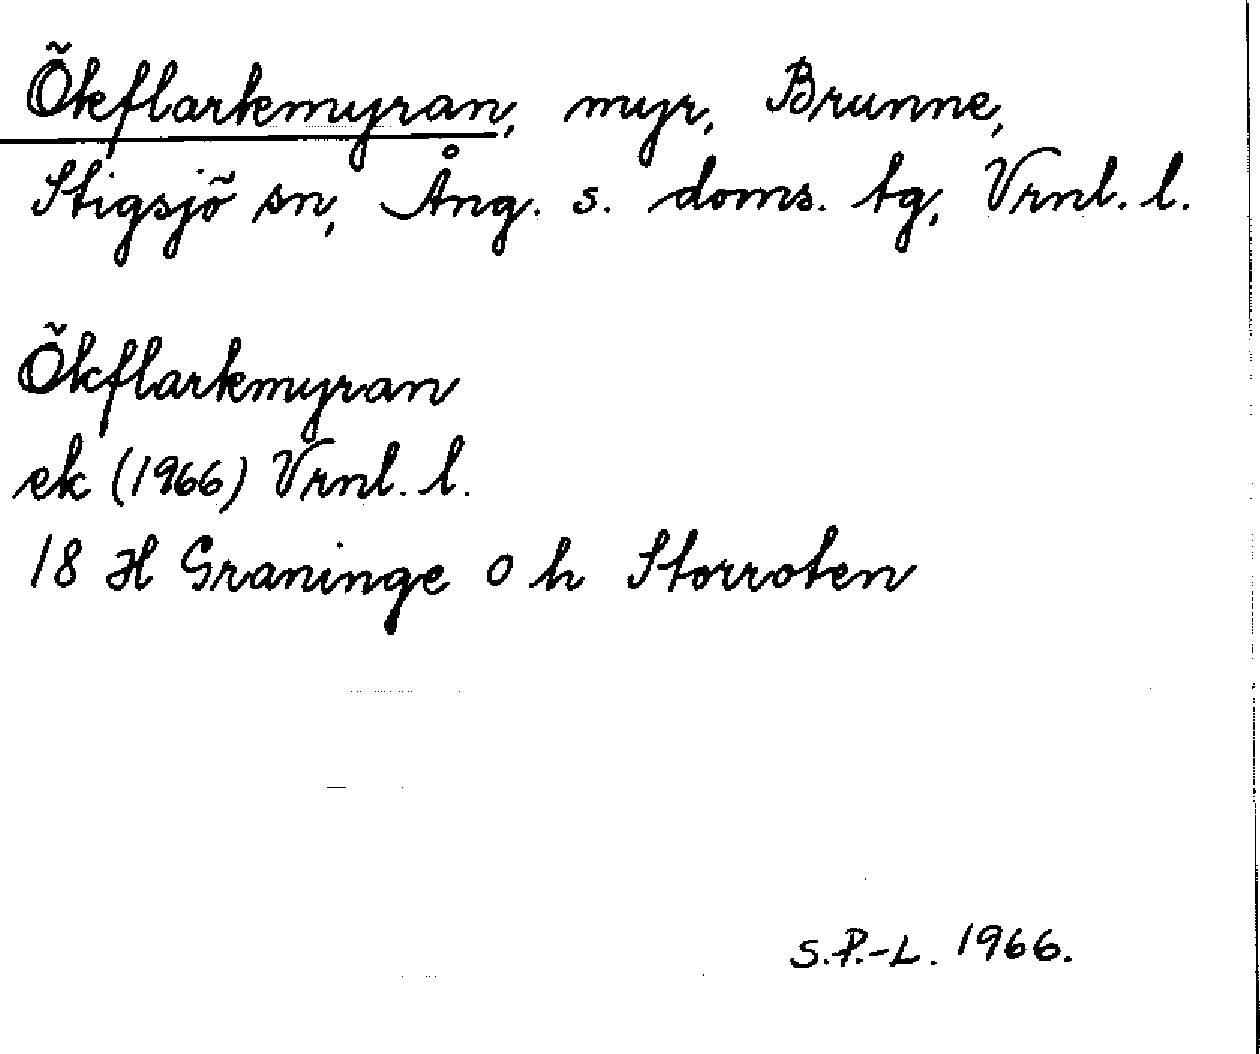 Ökflarkmyran, myr, Brunne,
Stigsjö sn, Ång. s. doms. tg, Vrnl. l.
Ökflarkmyran
ek (1966) Vrnl. l.
18 H Graninge o h Storroten
S.P.-L. 1966.